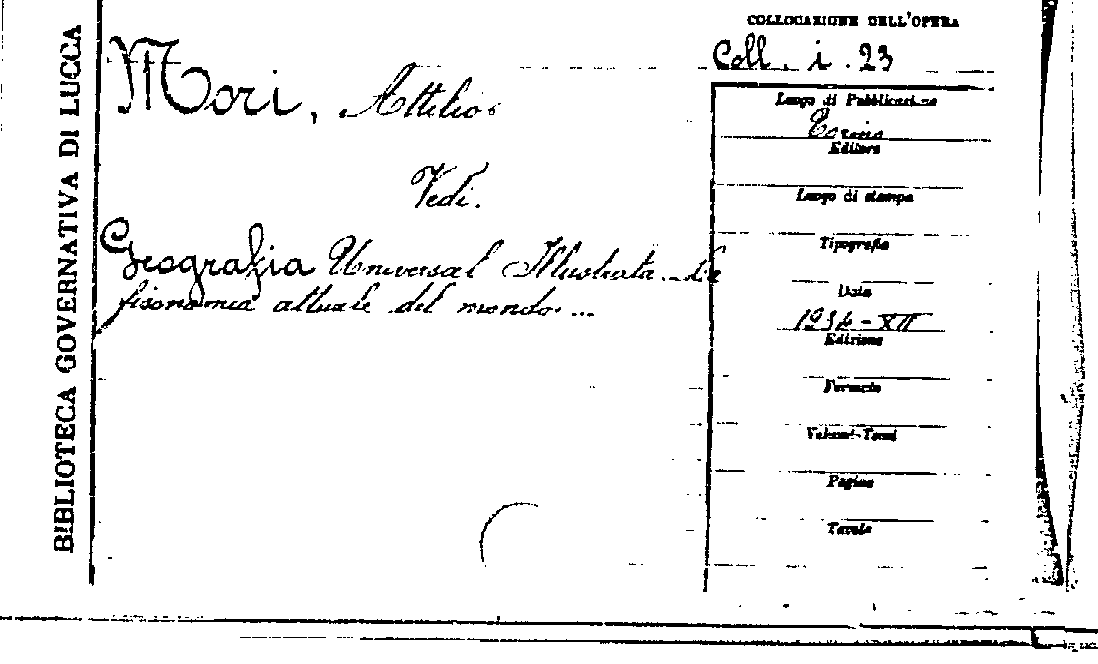 BIBLIOTECA GOVERNATIVA DI LUCCA
COLLOCAZIONE DELL'OPERA
Coll. i. 23
Mori, Attilio
Vedi.
Geografia Universal Illustrata. La
fisonomia attuale del mondo...
Luogo di Pubblicazione
Torino
Editore
Luogo di stampa
Tipografia
Data
1934-XII
Edizione
Formato
Volumi-Tomi
Pagine
Tavole